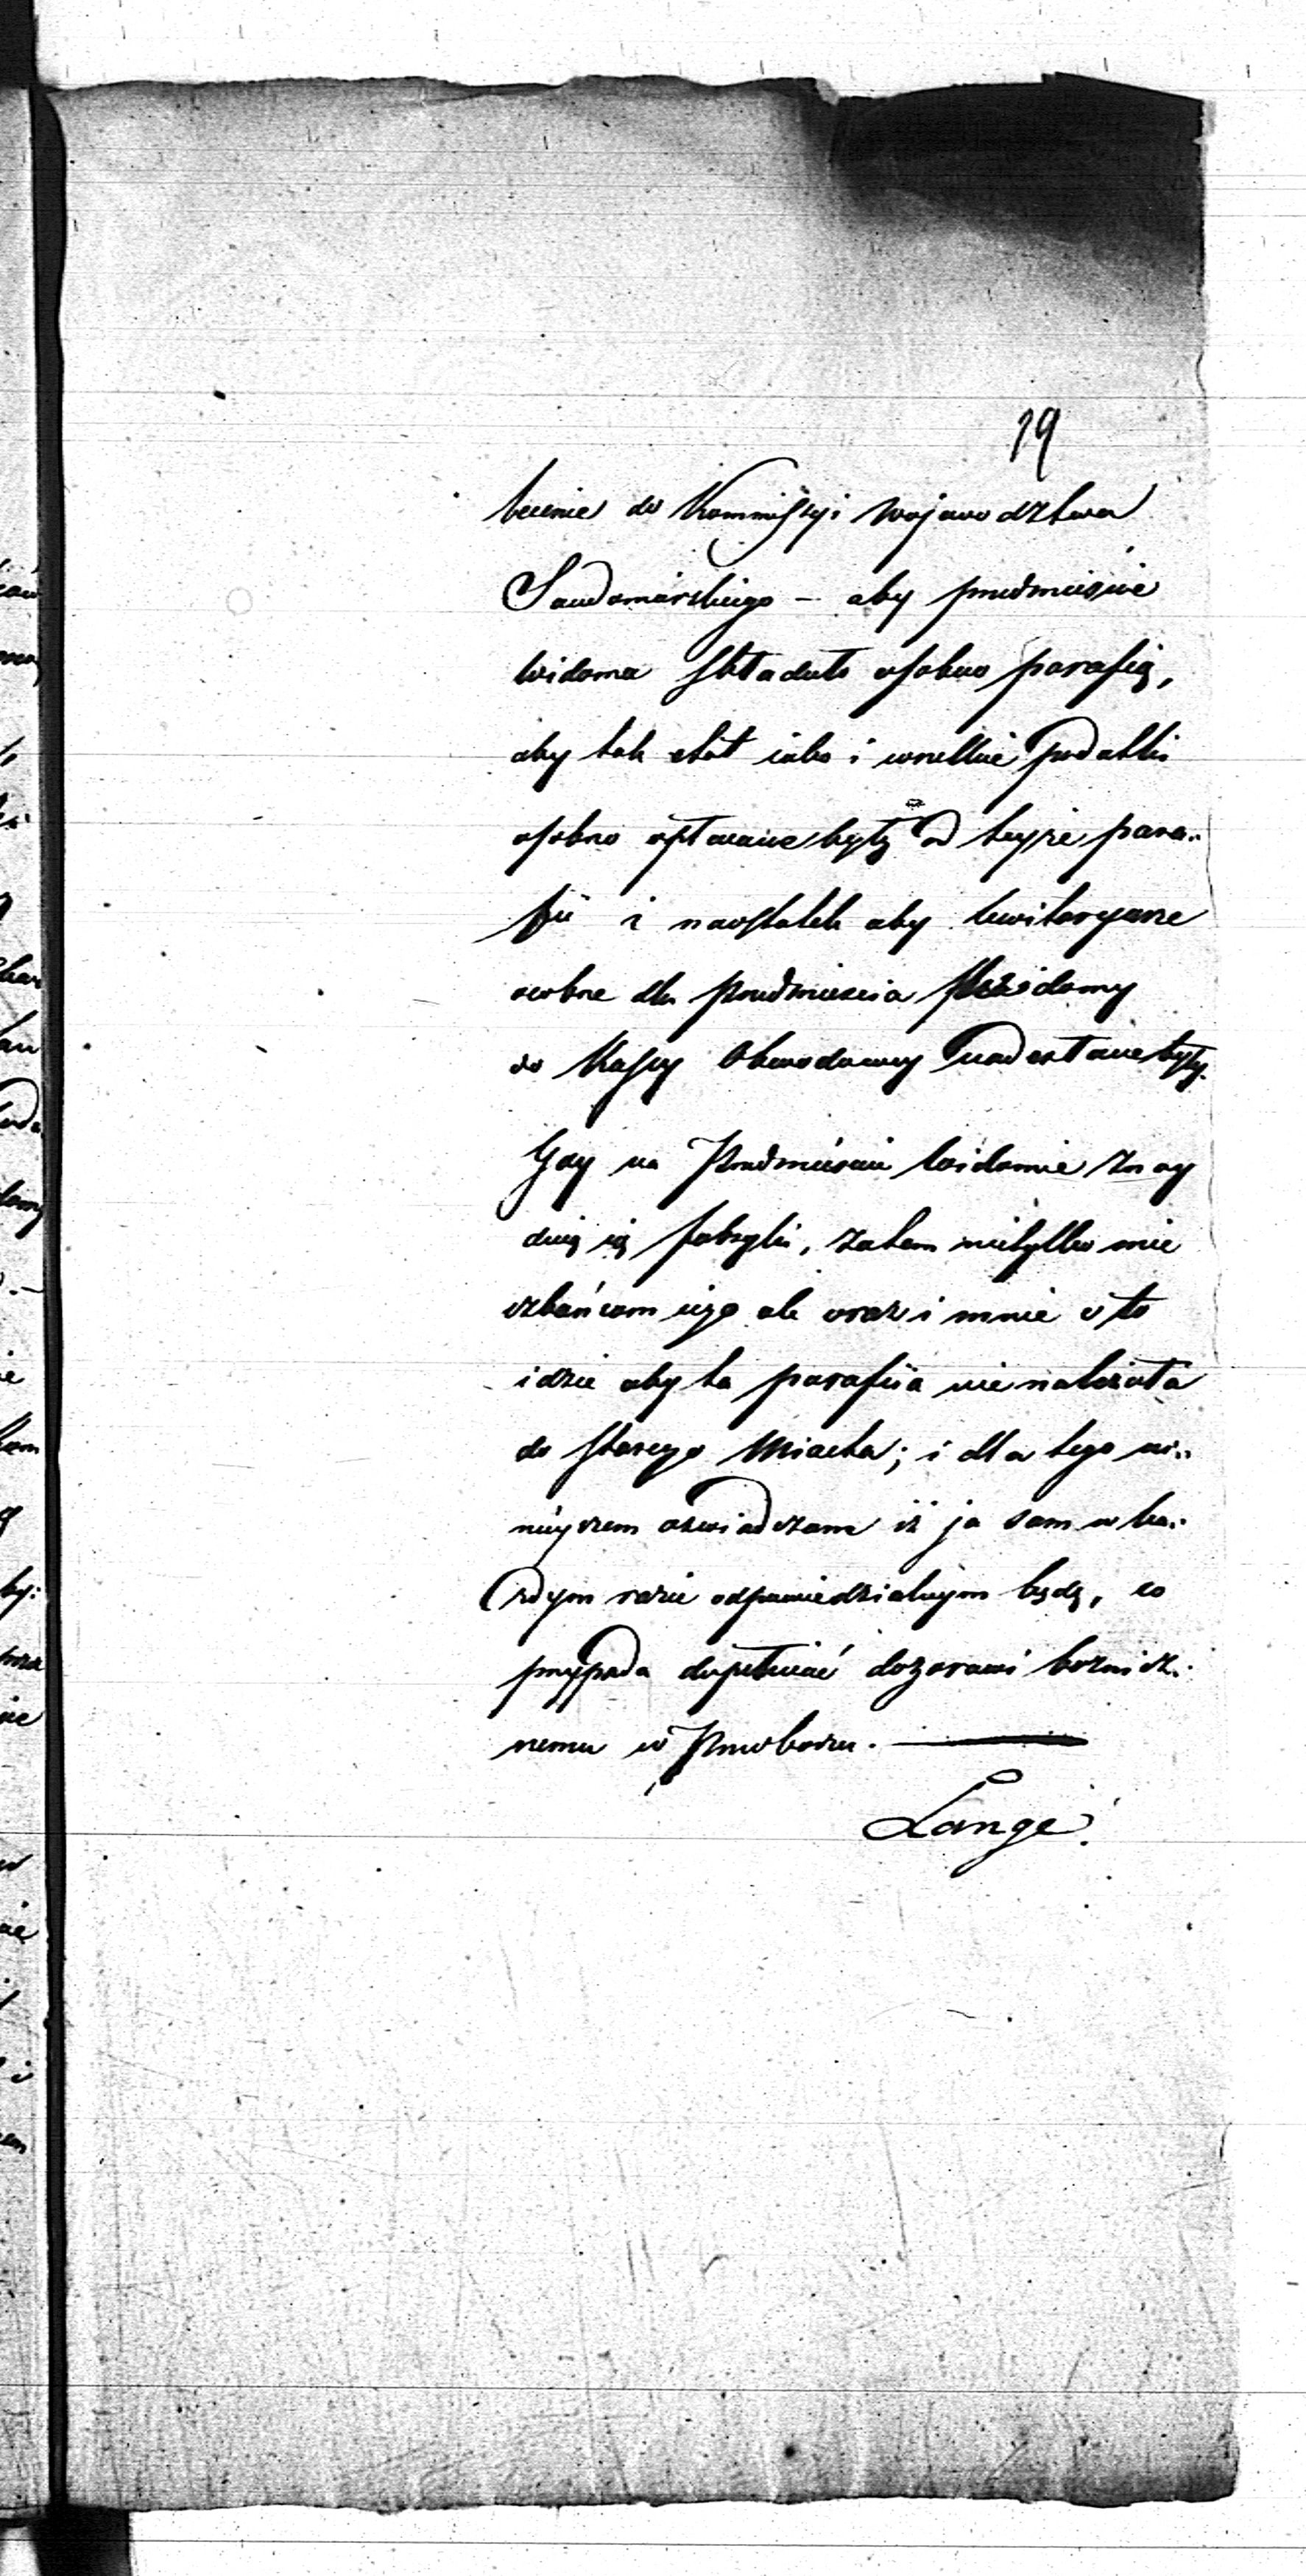 19
becnie do Kommissyi Wojewodztwa
Sandomirskiego – aby przedmieście
Widoma składało osobno parafią,
aby tak etat iako i wszelkie podatki
osobno opłacane były od teyże para„
fii i naostatek aby kwitaryusze
osobne dla przedmieścia Widomy
do Kassy Obwodowey nadesłane były.
Gdy na Przedmieściu Widomie znay
duią się fabryki, zatem nietylko mie
szkańcom iego ale oraz i mnie o to
idzie aby ta parafiia nienależała
do starego Miasta; i dla tego ni„
nieyszem oświadczam iż ja sam w ka„
żdym razie odpowiedzialnym będę, co
przypada dopełniać dozorowi bożnicz„
nemu w Przedborzu.
Lange